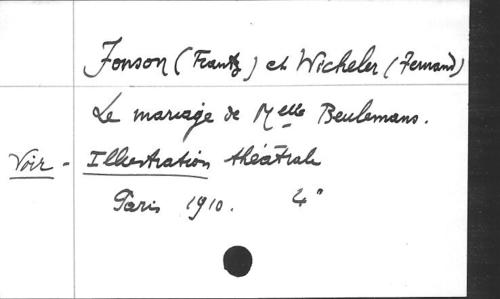 Fonson (Frantz) et Wicheler (Fernand)
Le mariage de Melle Beulemans.
Voir - Illustration théâtrale
Paris 1910. 4°